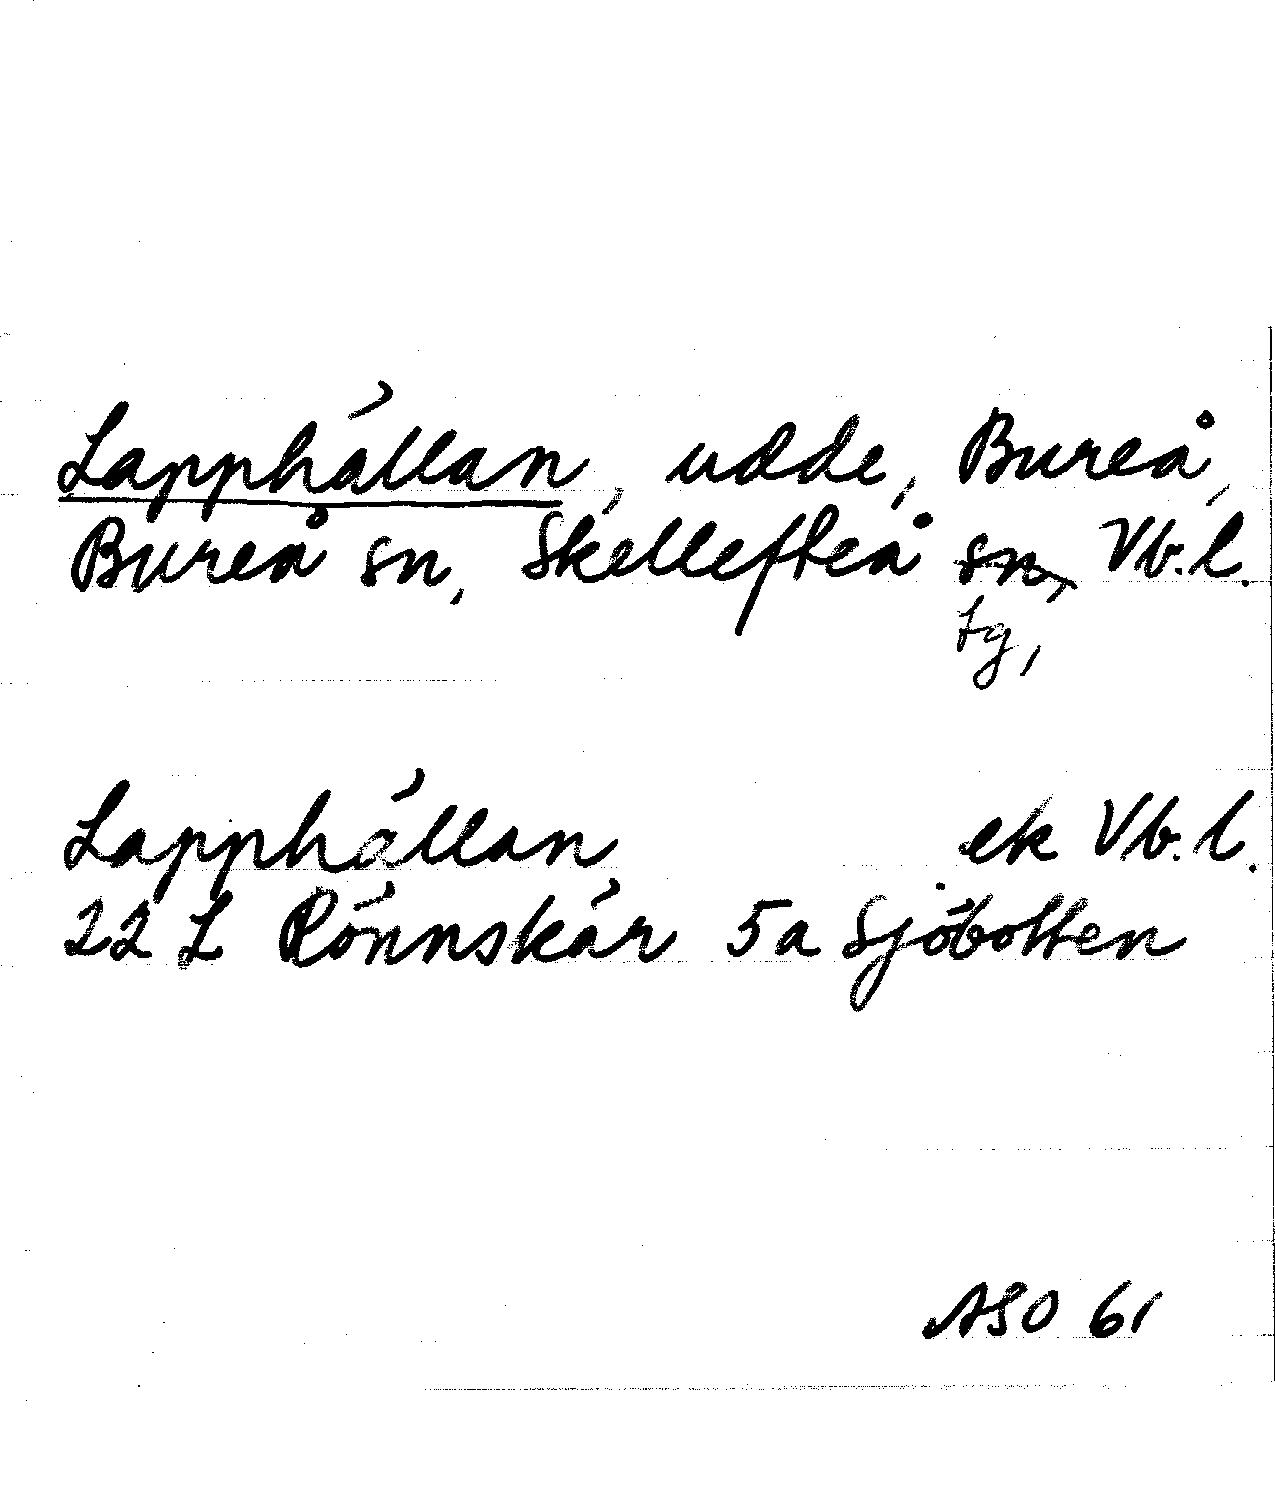 Lapphällan, udde, Bureå,
Bureå sn, Skellefteå sn, Vb.l.
tg,
Lapphällan ek Vb.l.
22 L Rönnskär 5a Sjöbotten
ASO 61